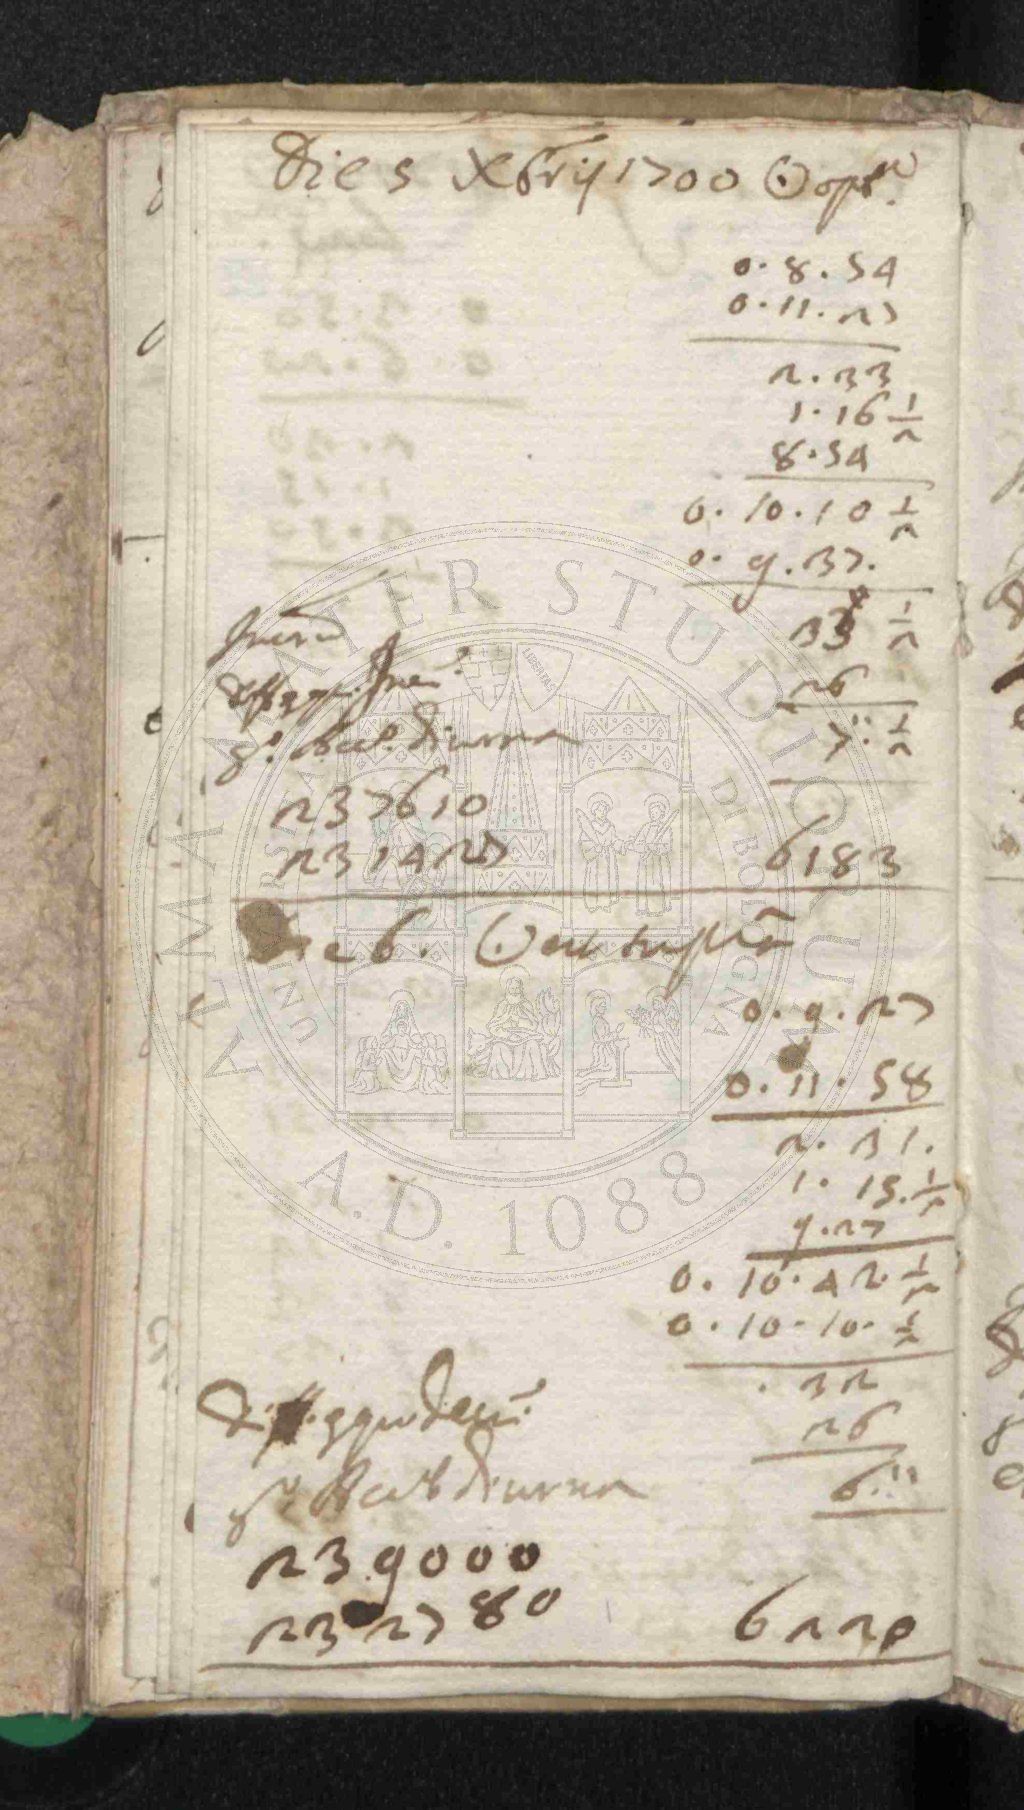 Die 5 Xbrij 1700 ☉
0. 8. 54
0. 11. 27
2. 33
1. 16 1/2
8. 54
0. 10. 10 1/2
0. 9. 37.
33 1/2
26
7.'' 1/2
diurna
237610
231427 6183
Die 6. ☉
0. 9. 27
0. 11. 58
2. 31.
1. 15. 1/2
9. 27
0. 10. 42. 1/2
0. 10. 10. 1/2
. 32
26
6.''
diurna
239000
232780 6220
ALMA MATER STUDIORUM
UNIVERSITÀ DI BOLOGNA
LIBERTAS
A.D. 1088